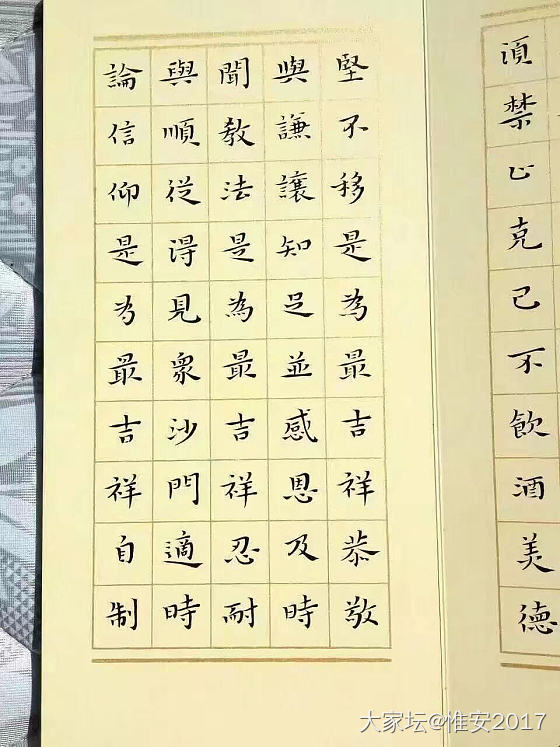 須禁心克己不飲酒美德
堅不移是為最吉祥恭敬
與謙讓知足並感恩及時
聞教法是為最吉祥忍耐
與順從得見眾沙門適時
論信仰是為最吉祥自制
大家坛@惟安2017